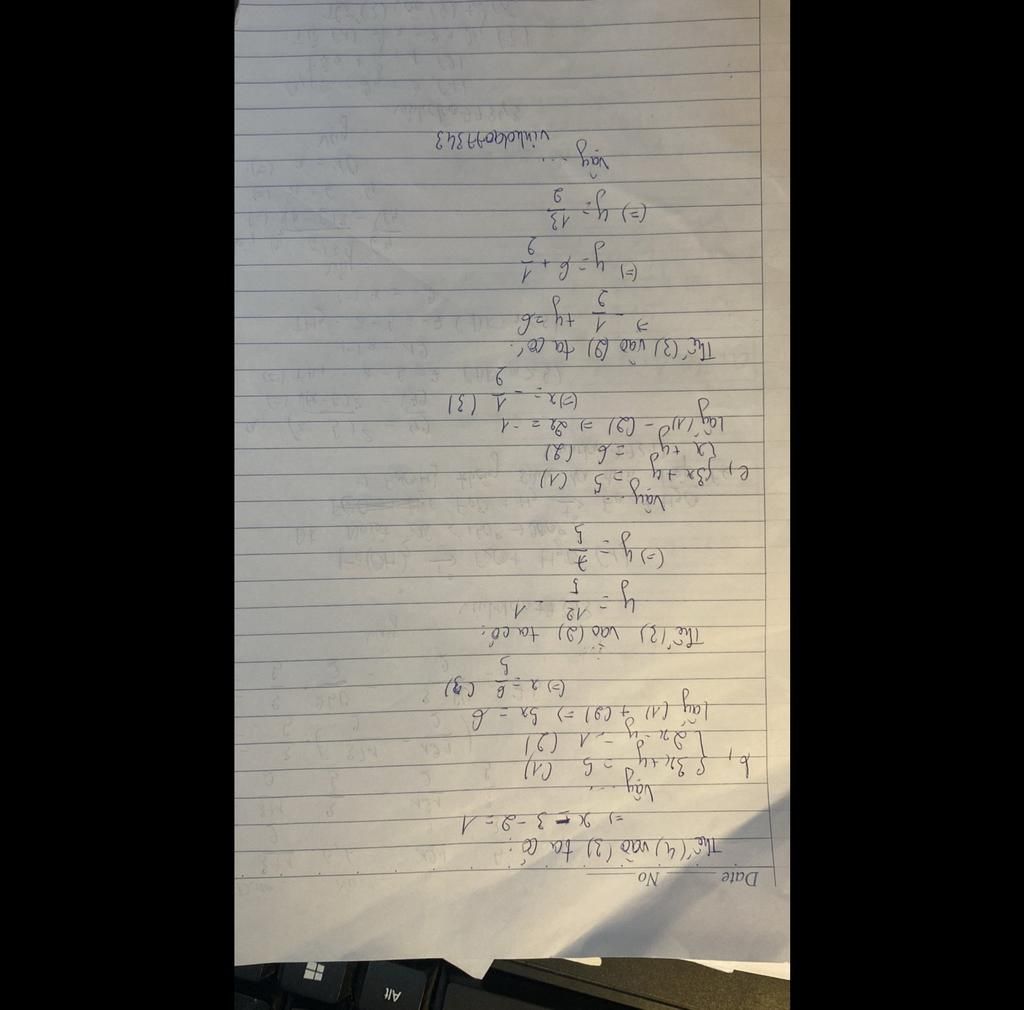 Date No
Thế (4) vào (3) ta có:
=> x = 3 - 2 = 1
Vậy ...
b, { 3x + y = 5 (1)
2x - y = 1 (2)
Lấy (1) + (2) => 5x = 6
(=) x = 6/5 (3)
Thế (3) vào (2) ta có:
y = 12/5 - 1
(=) y = 7/5
Vậy ...
c, { 3x + y = 5 (1)
{ x + y = 6 (2)
Lấy (1) - (2) => 2x = -1
(=) x = - 1/2 (3)
Thế (3) vào (2) ta có:
=> - 1/2 + y = 6
(=) y = 6 + 1/2
(=) y = 13/2
Vậy ...
vinhdao7343
Alt